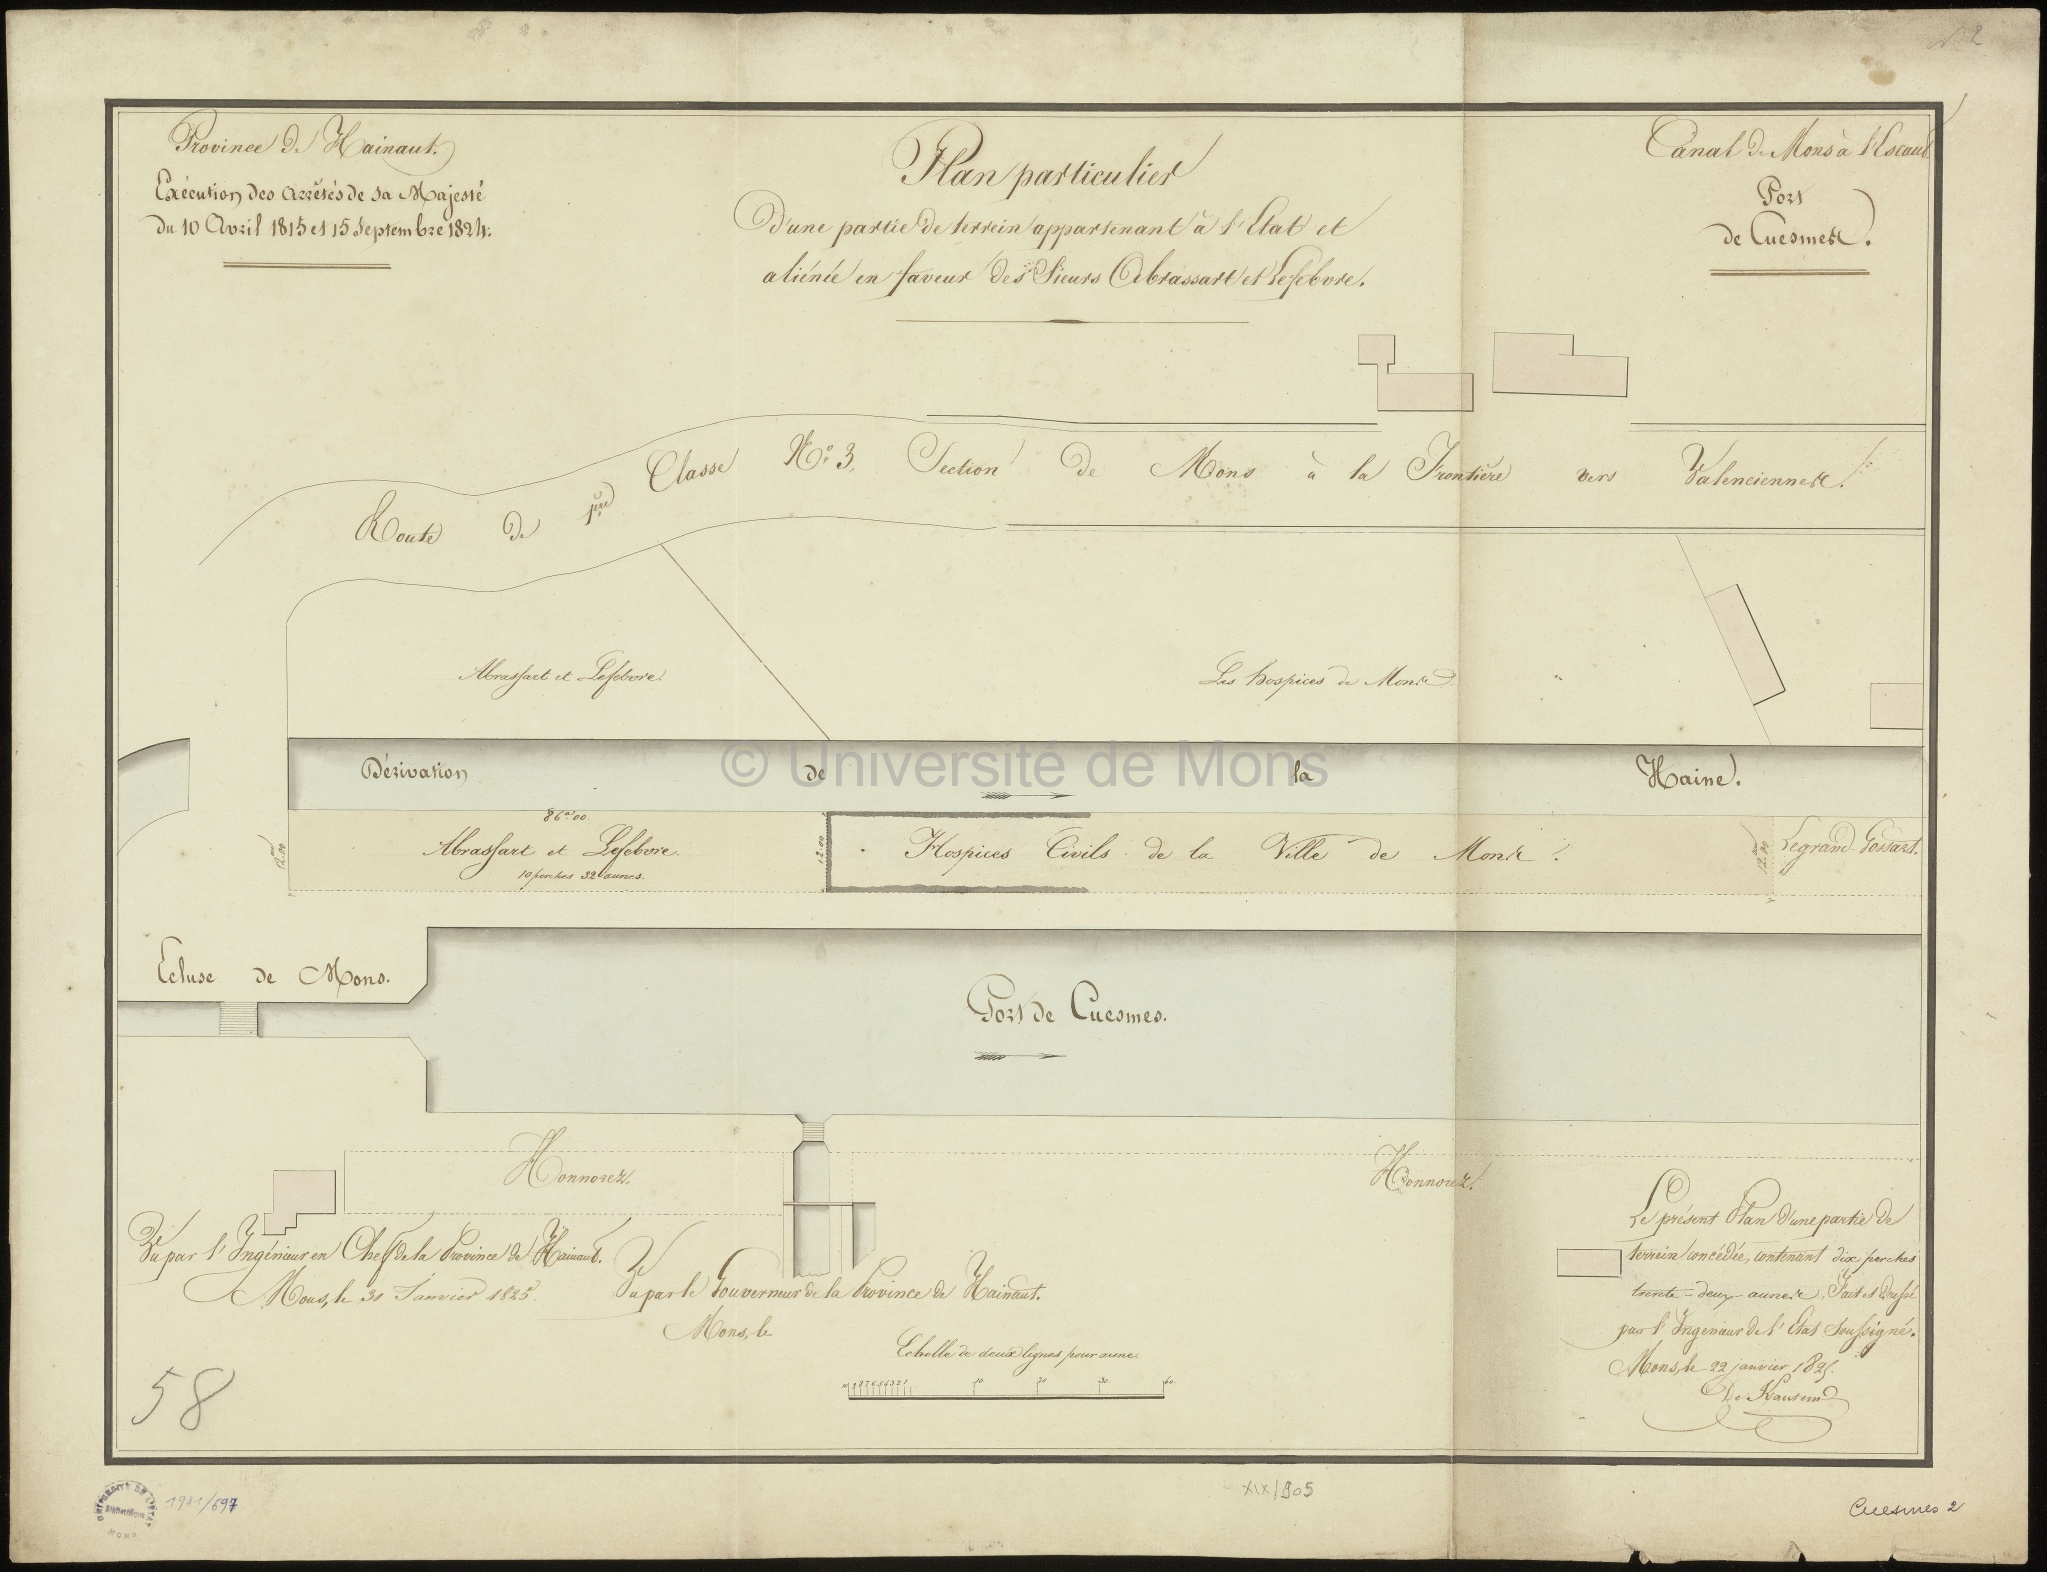 Province de Hainaut.
Exécution des arrêtés de sa Majesté
du 10 Avril 1815 et 15 Septembre 1824.
Plan particulier
D'une partie de terrein appartenant à l'Etat et
aliénée en faveur des Sieurs Abrassart et Lefebvre.
Canal de Mons à l'Escaut
Port
de Cuesmes.
Route de 1ère Classe No. 3, Section de Mons à la Frontière vers Valenciennes.
Abrassart et Lefebvre.
Les hospices de Mons
Dérivation de la Haine.
© Université de Mons
86 au 00
12.00
Abrassart et Lefebvre.
10 perches 32 aunes.
12.00
Hospices Civils de la Ville de Mons.
12.00
Legrand-Gossart.
Ecluse de Mons.
Port de Cuesmes.
Honnorez.
Honnorez.
Vu par l'Ingénieur en Chef de la Province de Hainaut.
Mons, le 31 Janvier 1825
Vu par le Gouverneur de la Province de Hainaut.
Mons, le
Echelle de deux lignes pour aune
10 9 8 7 6 5 4 3 2 1 10 20 30 40.
Le présent Plan d'une partie de
terrein concédée, contenant dix perches
trente-deux aunes. Fait et dressé
par l'Ingénieur de l'Etat soussigné.
Mons, le 22 janvier 1825.
58
UNIVERSITÉ DE L'ETAT
Bibliothèque
MONS
1981/697
XIX/905
Cuesmes 2